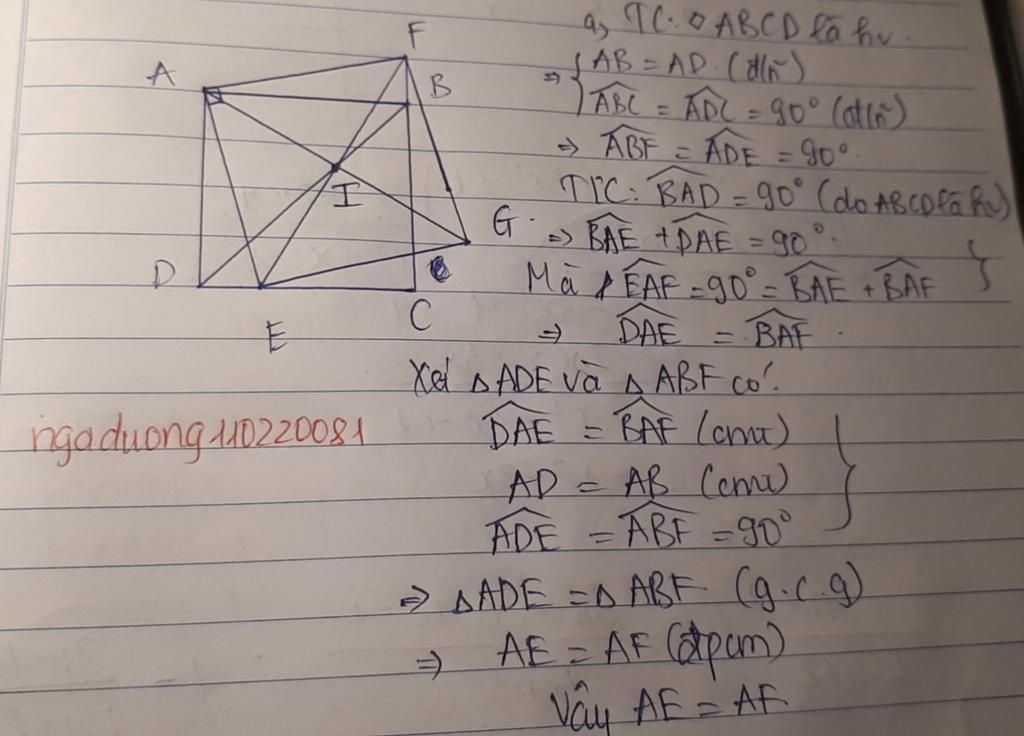 a, TC: ◊ ABCD là hv.
⇒ { AB = AD (đ/n)
{ \widehat{ABC} = \widehat{ADC} = 90° (đ/n)
⇒ \widehat{ABF} = \widehat{ADE} = 90°.
TTC: \widehat{BAD} = 90° (do ABCD là hv)
⇒ \widehat{BAE} + \widehat{DAE} = 90°.
Mà \widehat{EAF} = 90° = \widehat{BAE} + \widehat{BAF} }
⇒ \widehat{DAE} = \widehat{BAF}.
Xét △ADE và △ABF có:
\widehat{DAE} = \widehat{BAF} (cmt)
AD = AB (cmt)
\widehat{ADE} = \widehat{ABF} = 90° }
⇒ △ADE = △ABF (g.c.g)
⇒ AE = AF (đpcm)
Vậy AE = AF
A
F
B
I
G
D
C
E
ngaduong110220081